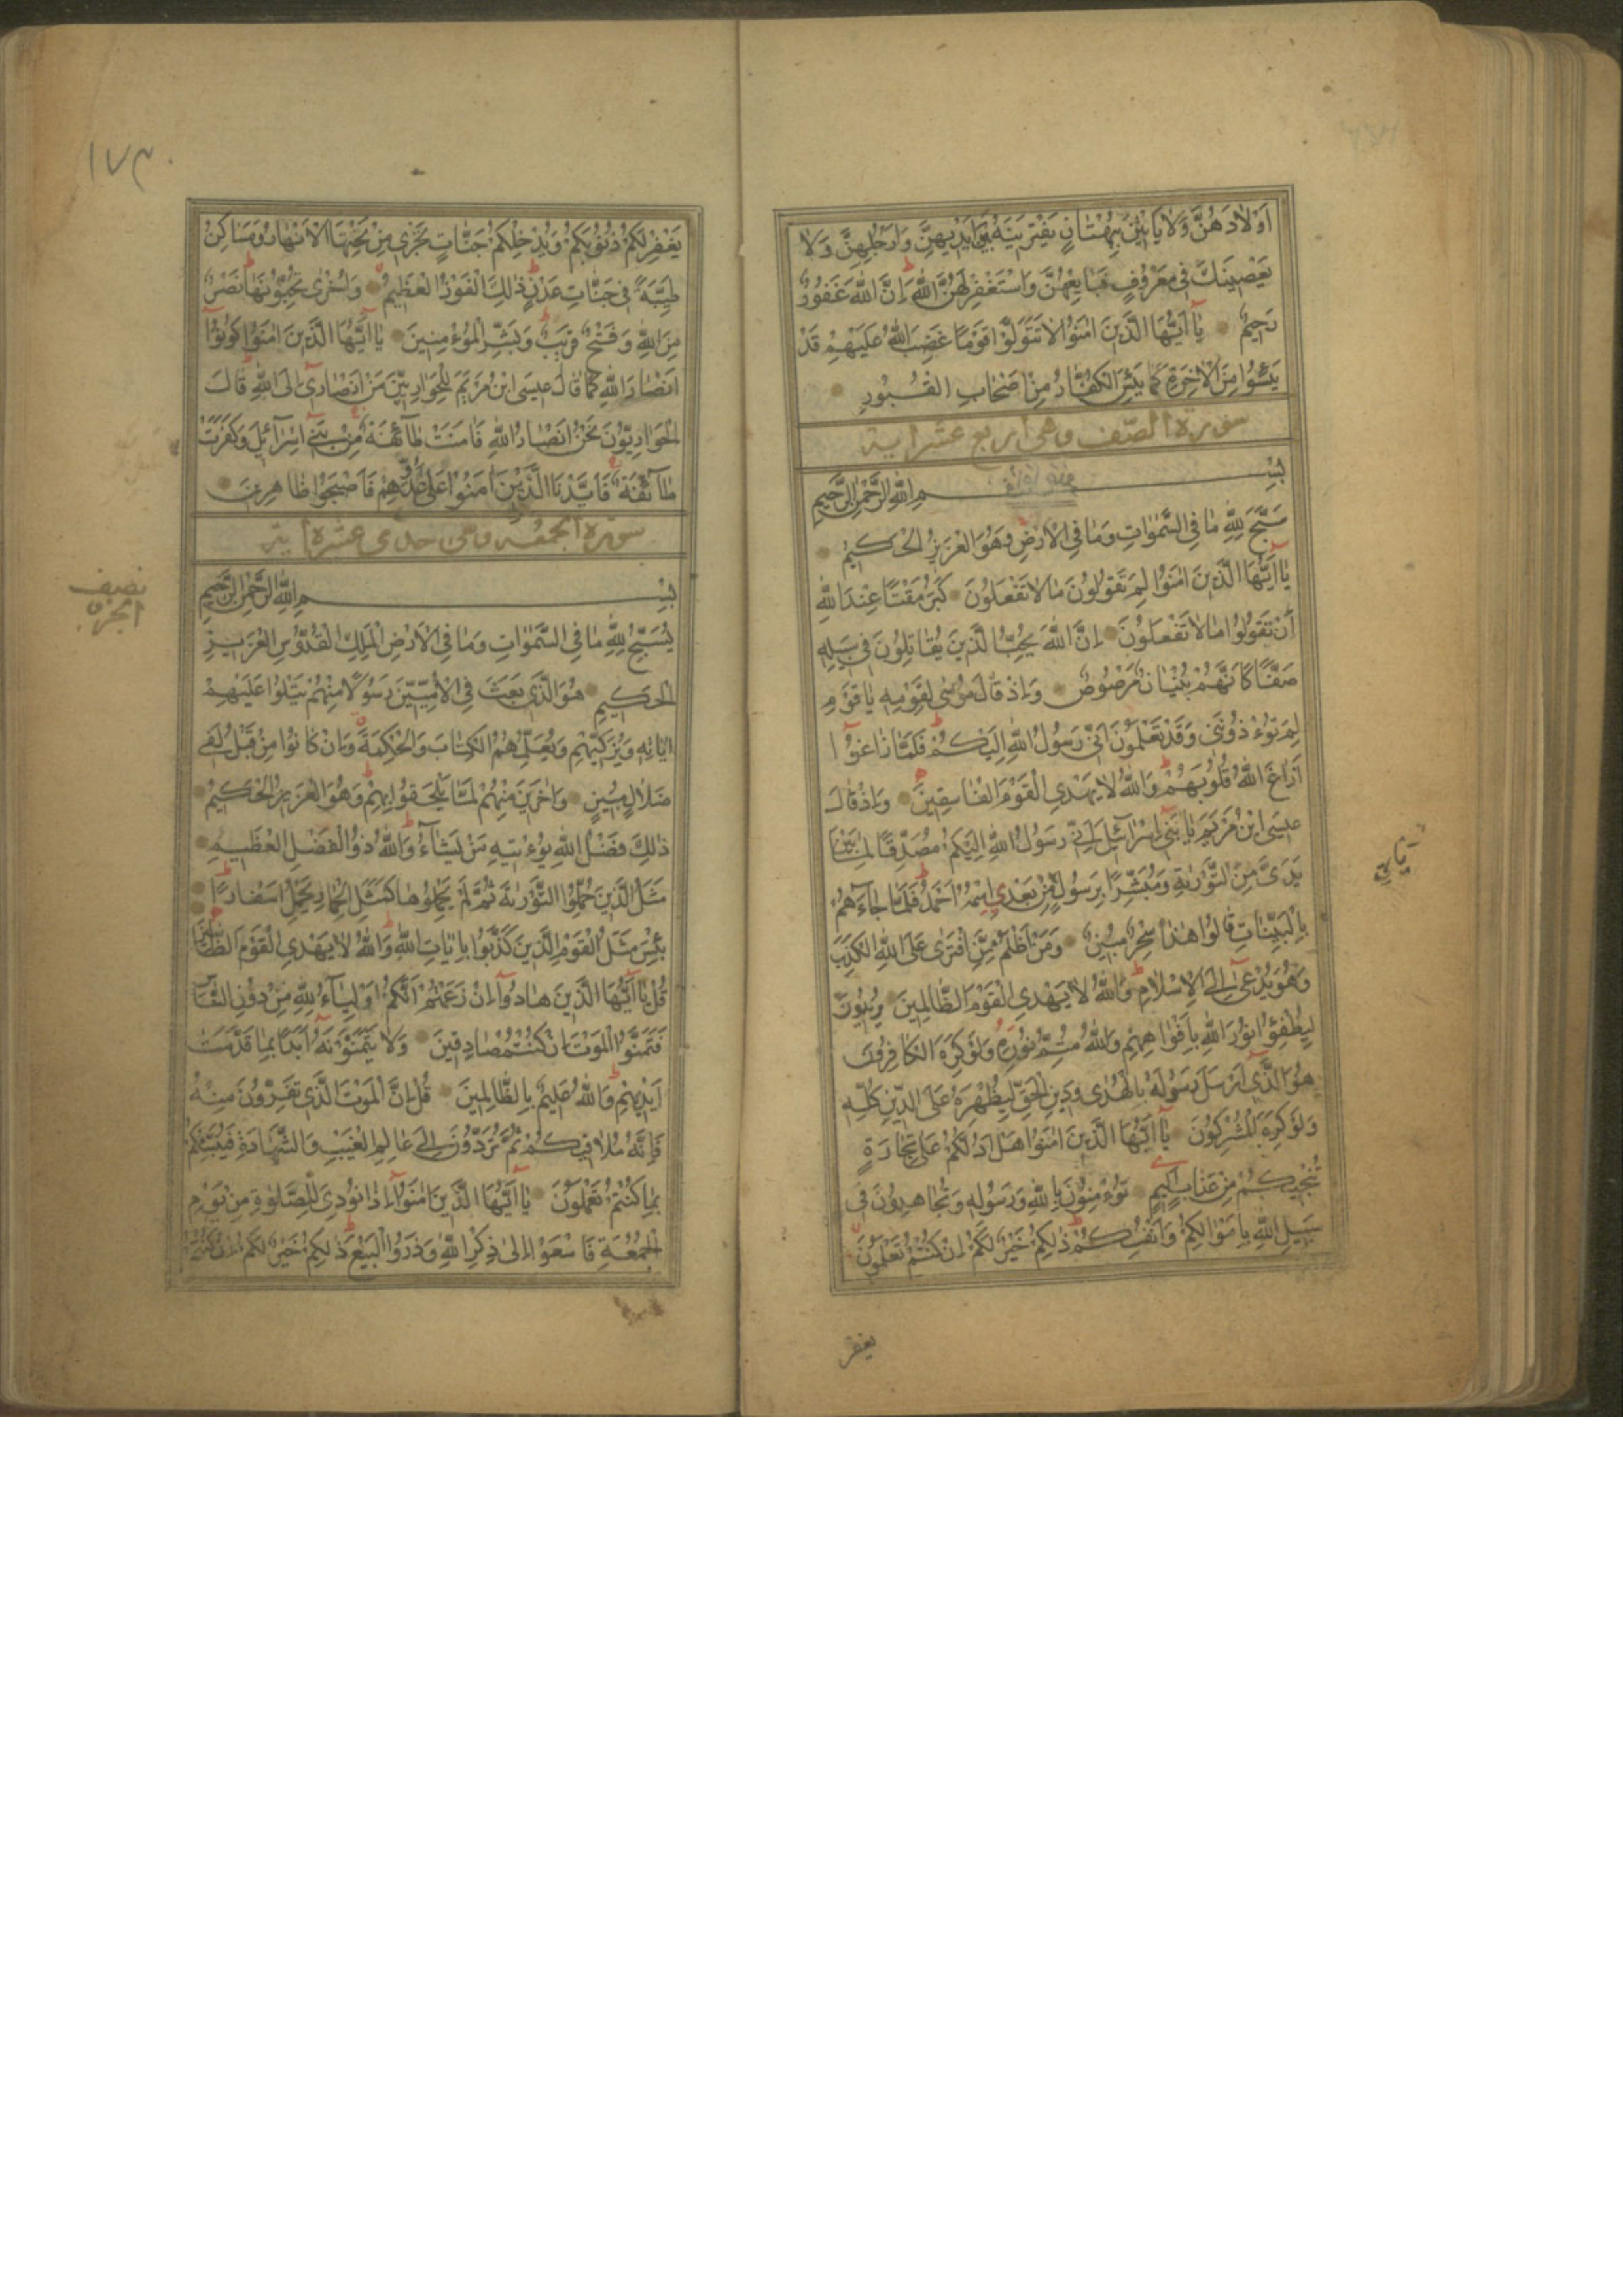 اَوْلادَهُنَّ وَلا يَاْتينَ بِبُهْتانٍ يَفْتَرينَهُ بَيْنَ اَيْديهِنَّ وَاَرْجُلِهِنَّ وَلا
يَعْصينَكَ في مَعْرُوفٍ فَبايِعْهُنَّ وَاسْتَغْفِرْ لَهُنَّ اللّٰهَ اِنَّ اللّٰهَ غَفُورٌ
رَحيمٌ يٰا اَيُّهَا الَّذينَ اٰمَنُوا لاتَتَوَلَّوْا قَوْمًا غَضِبَ اللّٰهُ عَلَيْهِمْ قَدْ
يَئِسُوا مِنَ الْاٰخِرَةِ كَما يَئِسَ الْكُفّارُ مِنْ اَصْحابِ الْقُبُورِ
سورة الصف وهى اربع عشر اية
بِسْمِ اللّٰهِ الرَّحْمٰنِ الرَّحيمِ
سَبَّحَ لِلّٰهِ مٰا فِي السَّمٰوٰاتِ وَمٰا فِي الْاَرْضِ وَهُوَ الْعَزيزُ الْحَكيمُ
يٰا اَيُّهَا الَّذينَ اٰمَنُوا لِمَ تَقُولُونَ مٰا لاٰ تَفْعَلُونَ كَبُرَ مَقْتًا عِنْدَ اللّٰهِ
اَنْ تَقُولُوا مٰا لاٰ تَفْعَلُونَ اِنَّ اللّٰهَ يُحِبُّ الَّذينَ يُقٰاتِلُونَ في سَبيلِهِ
صَفًّا كَاَنَّهُمْ بُنْيٰانٌ مَرْصُوصٌ وَاِذْ قٰالَ مُوسٰى لِقَوْمِهِ يٰا قَوْمِ
لِمَ تُؤْذُونَني وَقَدْ تَعْلَمُونَ اَنّي رَسُولُ اللّٰهِ اِلَيْكُمْ فَلَمّٰا زٰاغُوا
اَزٰاغَ اللّٰهُ قُلُوبَهُمْ وَاللّٰهُ لاٰ يَهْدِي الْقَوْمَ الْفٰاسِقينَ وَاِذْ قٰالَ
عيسَى ابْنُ مَرْيَمَ يٰا بَني اِسْرآئيلَ اِنّي رَسُولُ اللّٰهِ اِلَيْكُمْ مُصَدِّقًا لِمٰا بَيْنَ
يَدَيَّ مِنَ التَّوْرٰيةِ وَمُبَشِّرًا بِرَسُولٍ يَاْتي مِنْ بَعْدِي اسْمُهُ اَحْمَدُ فَلَمّٰا جٰاءَهُمْ
بِالْبَيِّنٰاتِ قٰالُوا هٰذٰا سِحْرٌ مُبينٌ وَمَنْ اَظْلَمُ مِمَّنِ افْتَرٰى عَلَى اللّٰهِ الْكَذِبَ
وَهُوَ يُدْعٰى اِلَى الْاِسْلاٰمِ وَاللّٰهُ لاٰ يَهْدِي الْقَوْمَ الظّٰالِمينَ يُريدُونَ
لِيُطْفِؤُا نُورَ اللّٰهِ بِاَفْوٰاهِهِمْ وَاللّٰهُ مُتِمُّ نُورِهِ وَلَوْ كَرِهَ الْكٰافِرُونَ
هُوَ الَّذي اَرْسَلَ رَسُولَهُ بِالْهُدٰى وَدينِ الْحَقِّ لِيُظْهِرَهُ عَلَى الدّينِ كُلِّهِ
وَلَوْ كَرِهَ الْمُشْرِكُونَ يٰا اَيُّهَا الَّذينَ اٰمَنُوا هَلْ اَدُلُّكُمْ عَلٰى تِجٰارَةٍ
تُنْجيكُمْ مِنْ عَذٰابٍ اَليمٍ تُؤْمِنُونَ بِاللّٰهِ وَرَسُولِهِ وَتُجٰاهِدُونَ في
سَبيلِ اللّٰهِ بِاَمْوٰالِكُمْ وَاَنْفُسِكُمْ ذٰلِكُمْ خَيْرٌ لَكُمْ اِنْ كُنْتُمْ تَعْلَمُونَ
يغفر
١٧٣
يَغْفِرْ لَكُمْ ذُنُوبَكُمْ وَيُدْخِلْكُمْ جَنّٰاتٍ تَجْري مِنْ تَحْتِهَا الْاَنْهٰارُ وَمَسٰاكِنَ
طَيِّبَةً في جَنّٰاتِ عَدْنٍ ذٰلِكَ الْفَوْزُ الْعَظيمُ وَاُخْرٰى تُحِبُّونَهٰا نَصْرٌ
مِنَ اللّٰهِ وَفَتْحٌ قَريبٌ وَبَشِّرِ الْمُؤْمِنينَ يٰا اَيُّهَا الَّذينَ اٰمَنُوا كُونُوا
اَنْصٰارَ اللّٰهِ كَمٰا قٰالَ عيسَى ابْنُ مَرْيَمَ لِلْحَوٰارِيّينَ مَنْ اَنْصٰاري اِلَى اللّٰهِ قٰالَ
الْحَوٰارِيُّونَ نَحْنُ اَنْصٰارُ اللّٰهِ فَاٰمَنَتْ طٰآئِفَةٌ مِنْ بَني اِسْرآئيلَ وَكَفَرَتْ
طٰآئِفَةٌ فَاَيَّدْنَا الَّذينَ اٰمَنُوا عَلٰى عَدُوِّهِمْ فَاَصْبَحُوا ظٰاهِرينَ
سورة الجمعه وهى حدى عشرة اية
نصف
الجزء
بِسْمِ اللّٰهِ الرَّحْمٰنِ الرَّحيمِ
يُسَبِّحُ لِلّٰهِ مٰا فِي السَّمٰوٰاتِ وَمٰا فِي الْاَرْضِ الْمَلِكِ الْقُدُّوسِ الْعَزيزِ
الْحَكيمِ هُوَ الَّذي بَعَثَ فِي الْاُمِّيّينَ رَسُولًا مِنْهُمْ يَتْلُوا عَلَيْهِمْ
اٰيٰاتِهِ وَيُزَكّيهِمْ وَيُعَلِّمُهُمُ الْكِتٰابَ وَالْحِكْمَةَ وَاِنْ كٰانُوا مِنْ قَبْلُ لَفي
ضَلاٰلٍ مُبينٍ وَاٰخَرينَ مِنْهُمْ لَمّٰا يَلْحَقُوا بِهِمْ وَهُوَ الْعَزيزُ الْحَكيمُ
ذٰلِكَ فَضْلُ اللّٰهِ يُؤْتيهِ مَنْ يَشٰآءُ وَاللّٰهُ ذُو الْفَضْلِ الْعَظيمِ
مَثَلُ الَّذينَ حُمِّلُوا التَّوْرٰيةَ ثُمَّ لَمْ يَحْمِلُوهٰا كَمَثَلِ الْحِمٰارِ يَحْمِلُ اَسْفٰارًا
بِئْسَ مَثَلُ الْقَوْمِ الَّذينَ كَذَّبُوا بِاٰيٰاتِ اللّٰهِ وَاللّٰهُ لاٰ يَهْدِي الْقَوْمَ الظّٰالمين
قُلْ يٰا اَيُّهَا الَّذينَ هٰادُوا اِنْ زَعَمْتُمْ اَنَّكُمْ اَوْلِيٰآءُ لِلّٰهِ مِنْ دُونِ النّٰاسِ
فَتَمَنَّوُا الْمَوْتَ اِنْ كُنْتُمْ صٰادِقينَ وَلاٰ يَتَمَنَّوْنَهُ اَبَدًا بِمٰا قَدَّمَتْ
اَيْديهِمْ وَاللّٰهُ عَليمٌ بِالظّٰالِمينَ قُلْ اِنَّ الْمَوْتَ الَّذي تَفِرُّونَ مِنْهُ
فَاِنَّهُ مُلاٰقيكُمْ ثُمَّ تُرَدُّونَ اِلٰى عٰالِمِ الْغَيْبِ وَالشَّهٰادَةِ فَيُنَبِّئُكُمْ
بِمٰا كُنْتُمْ تَعْمَلُونَ يٰا اَيُّهَا الَّذينَ اٰمَنُوا اِذٰا نُودِيَ لِلصَّلٰوةِ مِنْ يَوْمِ
الْجُمُعَةِ فَاسْعَوْا اِلٰى ذِكْرِ اللّٰهِ وَذَرُوا الْبَيْعَ ذٰلِكُمْ خَيْرٌ لَكُمْ اِنْ كُنْتُمْ